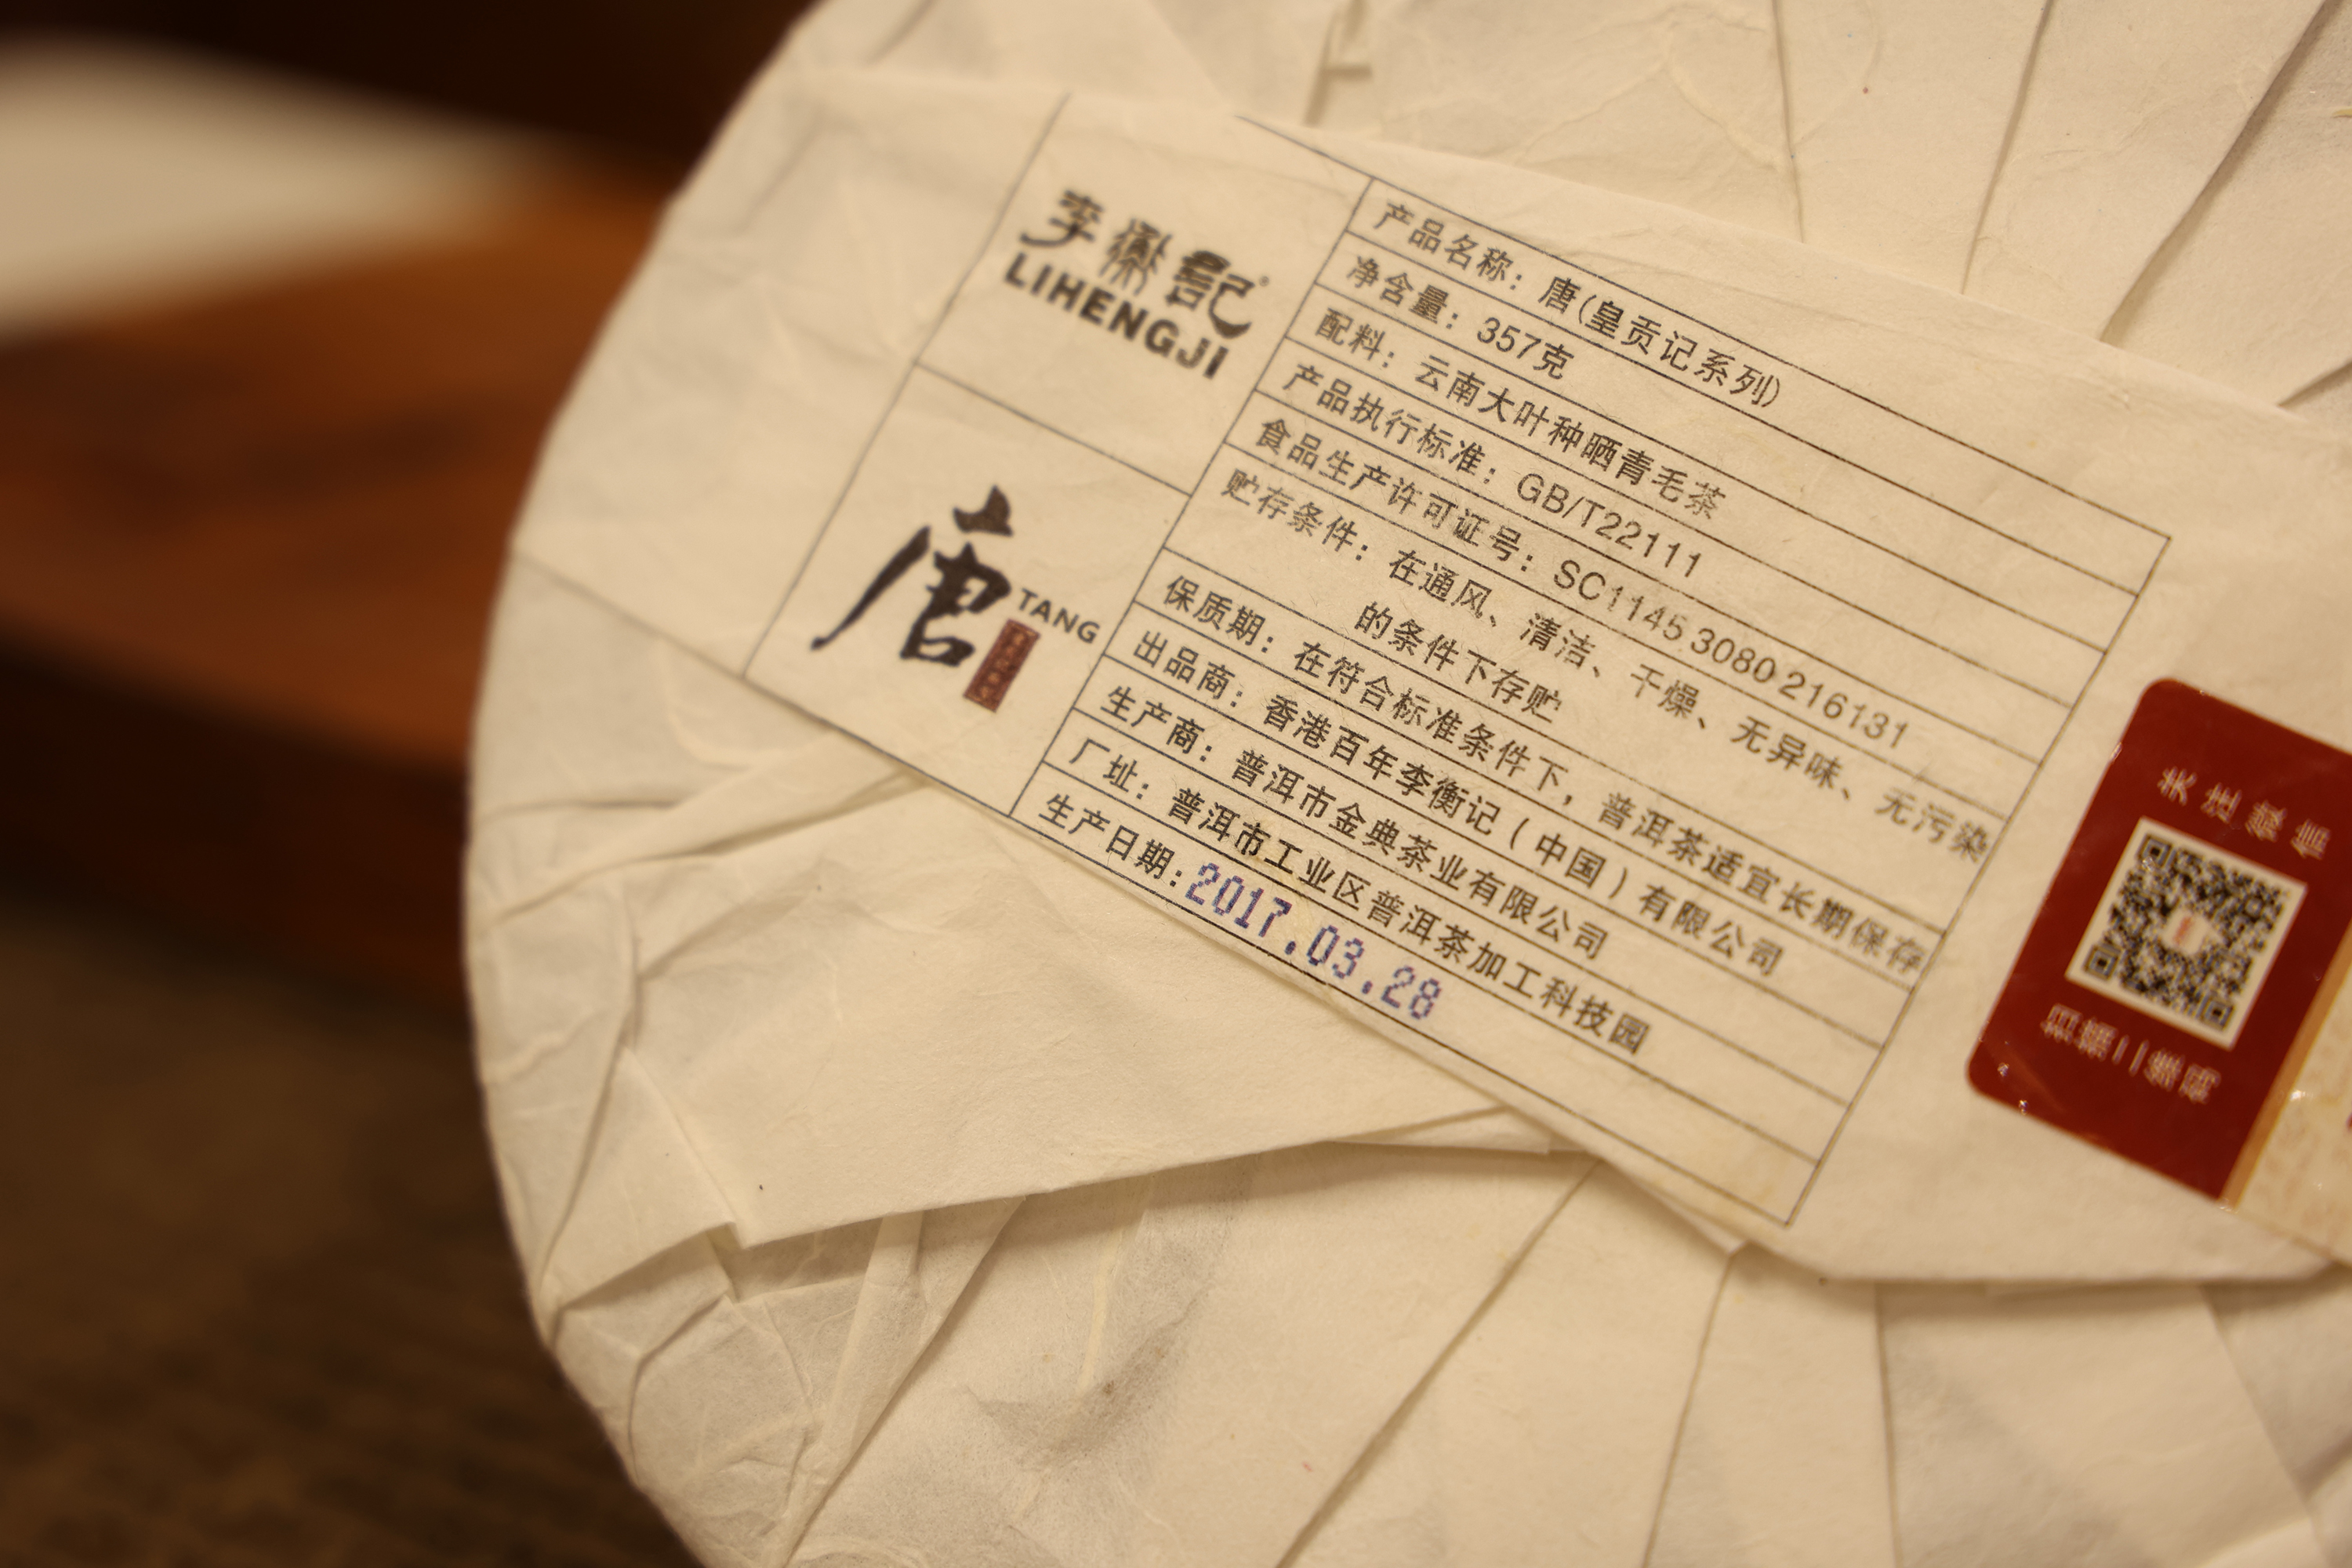 李衡記
LIHENGJI
唐
TANG
产品名称：唐(皇贡记系列)
净含量：357克
配料：云南大叶种晒青毛茶
产品执行标准：GB/T22111
食品生产许可证号：SC11453080216131
贮存条件：在通风、清洁、干燥、无异味、无污染
的条件下存贮
保质期：在符合标准条件下，普洱茶适宜长期保存
出品商：香港百年李衡记（中国）有限公司
生产商：普洱市金典茶业有限公司
厂址：普洱市工业区普洱茶加工科技园
生产日期：2017.03.28
关注微信